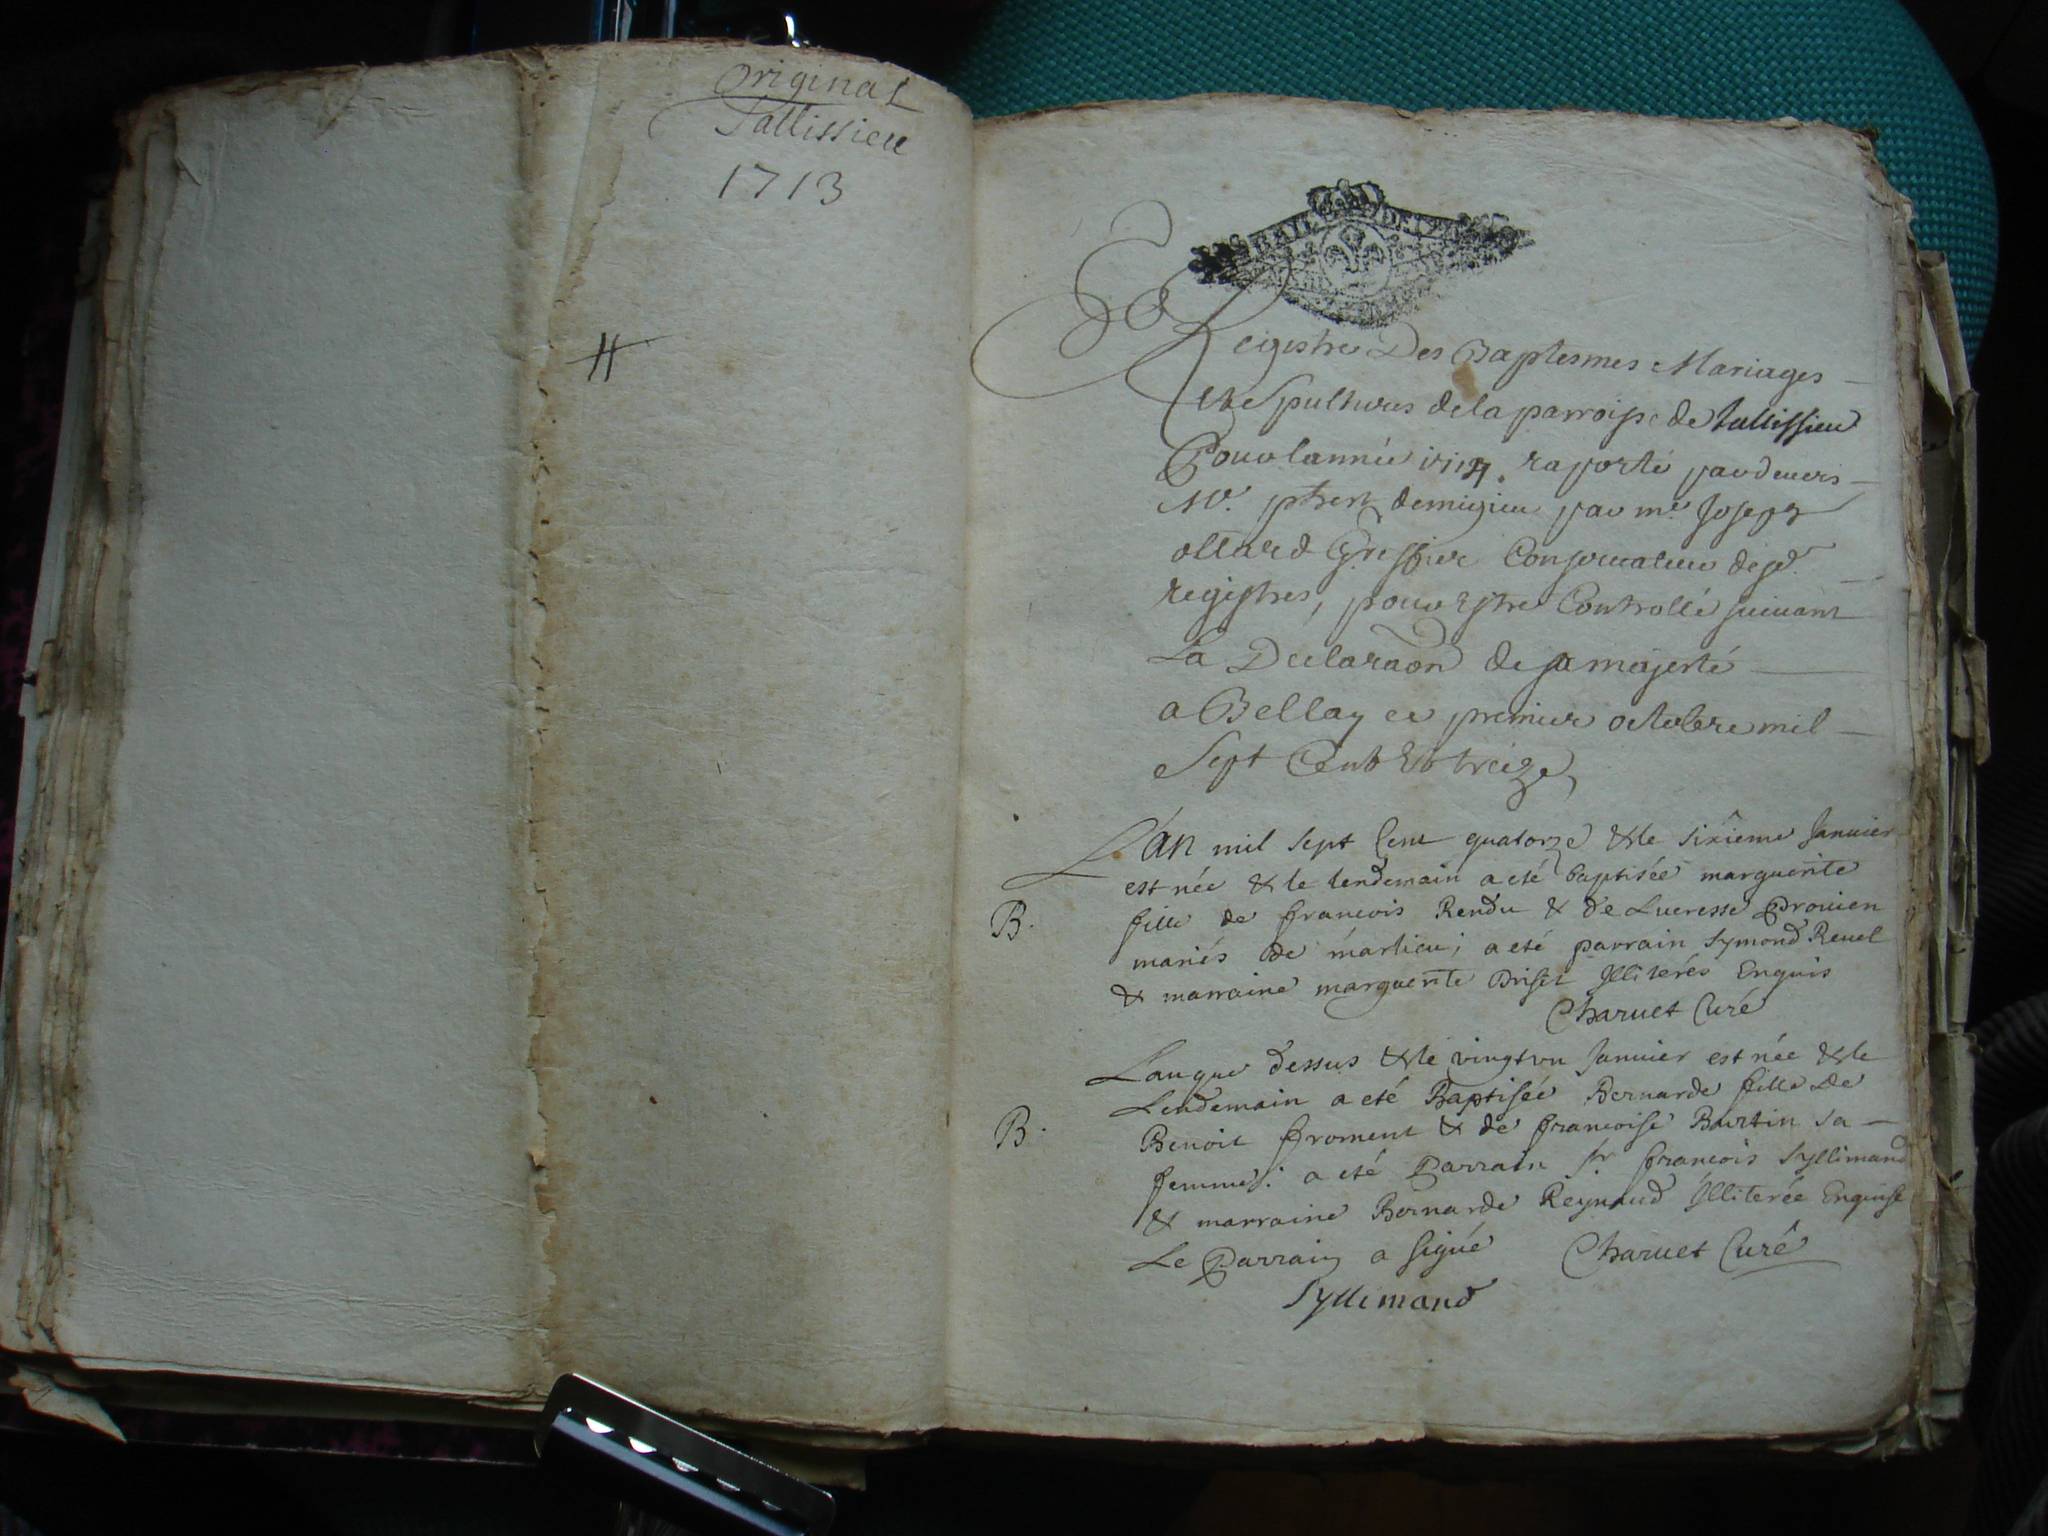 Original
Tallissieu
1713
Registre Des Baptesmes Mariages
et Sepultures de la parroisse de tallissieu
Pour lannée raporté pardeuers
Mr. demigieu par me. Joseph
ollard Greffier Conseruateur desd.
registres, pour Estre Controllé suiuant
La Declaraon de sa majesté
a Belley ce premier octobre mil
Sept Cent Et treize
L'an mil sept Cent quatorze & le sixieme Januier
est née & le lendemain a eté baptisée marguerite
B. fille de françois Rendu & de Lucresse Prouien
mariés de marlieu; a eté parrain Symond Reuel
& marraine marguerite Briset Illiterés Enquis
Charuet Curé
Lan que dessus & le vingt vn Januier est née & le
Lendemain a eté Baptisée Bernarde fille De
B. Benoit froment & de françoise Burtin sa
femme: a eté Parrain Sr françois Syllimand
& marraine Bernarde Reynaud Illiterée Enquise
Le Parrain a signé Charuet Curé
Syllimand